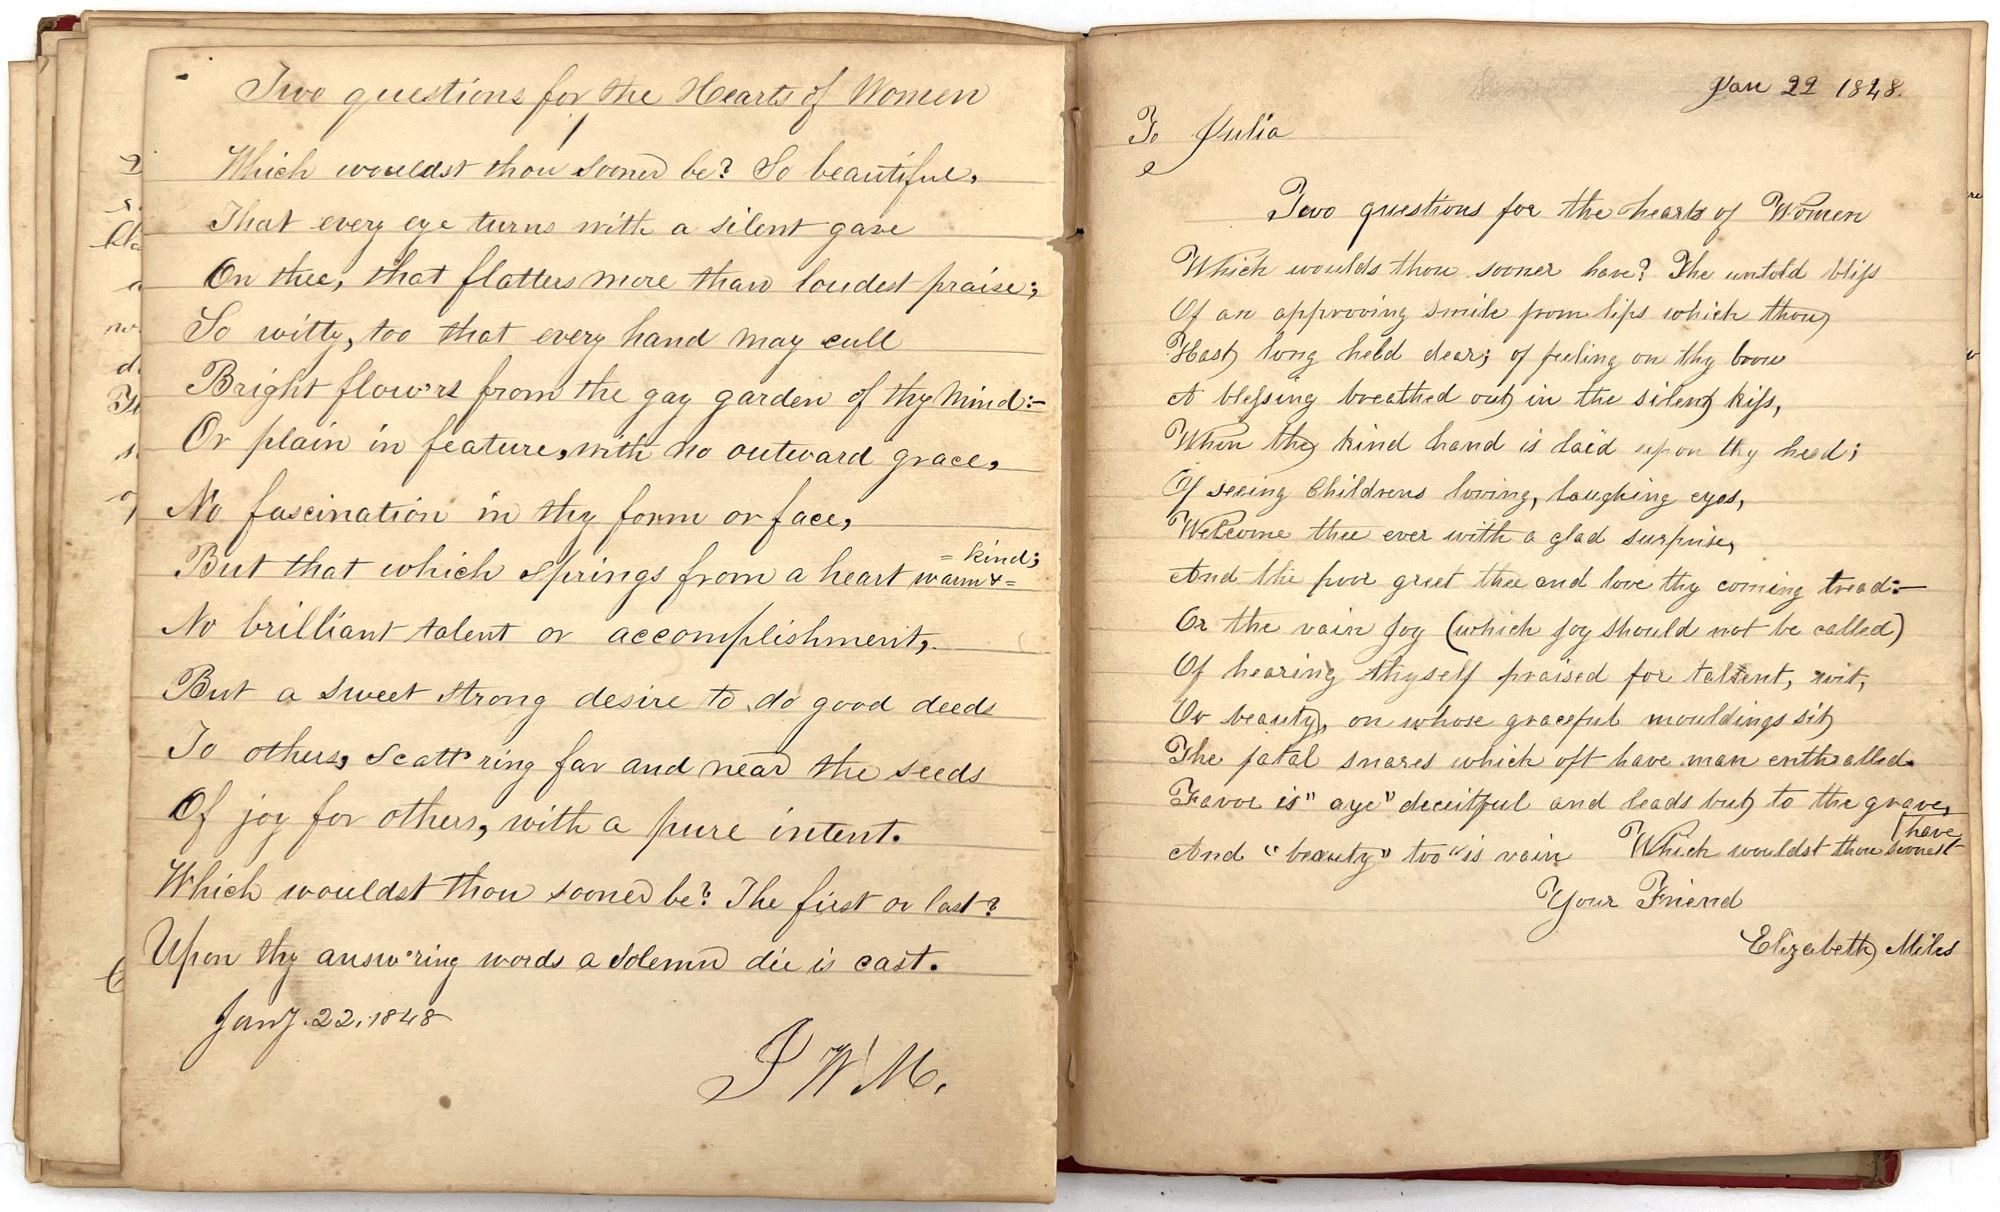 Two questions for the Hearts of Women
1
Which wouldst thou sooner be? So beautiful,
That every eye turns with a silent gaze
On thee, that flatters more than loudest praise;
So witty, too that every hand may cull
Bright flow'rs from the gay garden of thy mind:-
Or plain in feature, with no outward grace,
No fascination in thy form or face,
But that which springs from a heart warm &=
=kind;
No brilliant talent or accomplishment,
But a sweet strong desire to do good deeds
To others, scatt'ring far and near the seeds
Of joy for others, with a pure intent.
Which wouldst thou sooner be? The first or last?
Upon thy answ'ring words a solemn die is cast.
Jany. 22. 1848
J W M.
Jan 22 1848.
To Julia
Two questions for the hearts of Women
Which woulds thou sooner have? The untold bliss
Of an approving smile from lips which thou
Hast long held dear; of feeling on thy brow
A blessing breathed out in the silent kiss,
When the kind hand is laid upon thy head;
Of seeing Childrens loving, laughing eyes,
Welcome thee ever with a glad surprise,
And the poor greet thee and love thy coming tread:-
Or the vain joy (which joy should not be called)
Of hearing thyself praised for talent, wit,
Or beauty, on whose graceful mouldings sit
The fatal snares which oft have man enthralled.
Favor is "aye" deceitful and leads but to the grave,
And "beauty" too "is vain Which wouldst thou soonest
have
Your Friend
Elizabeth Miles